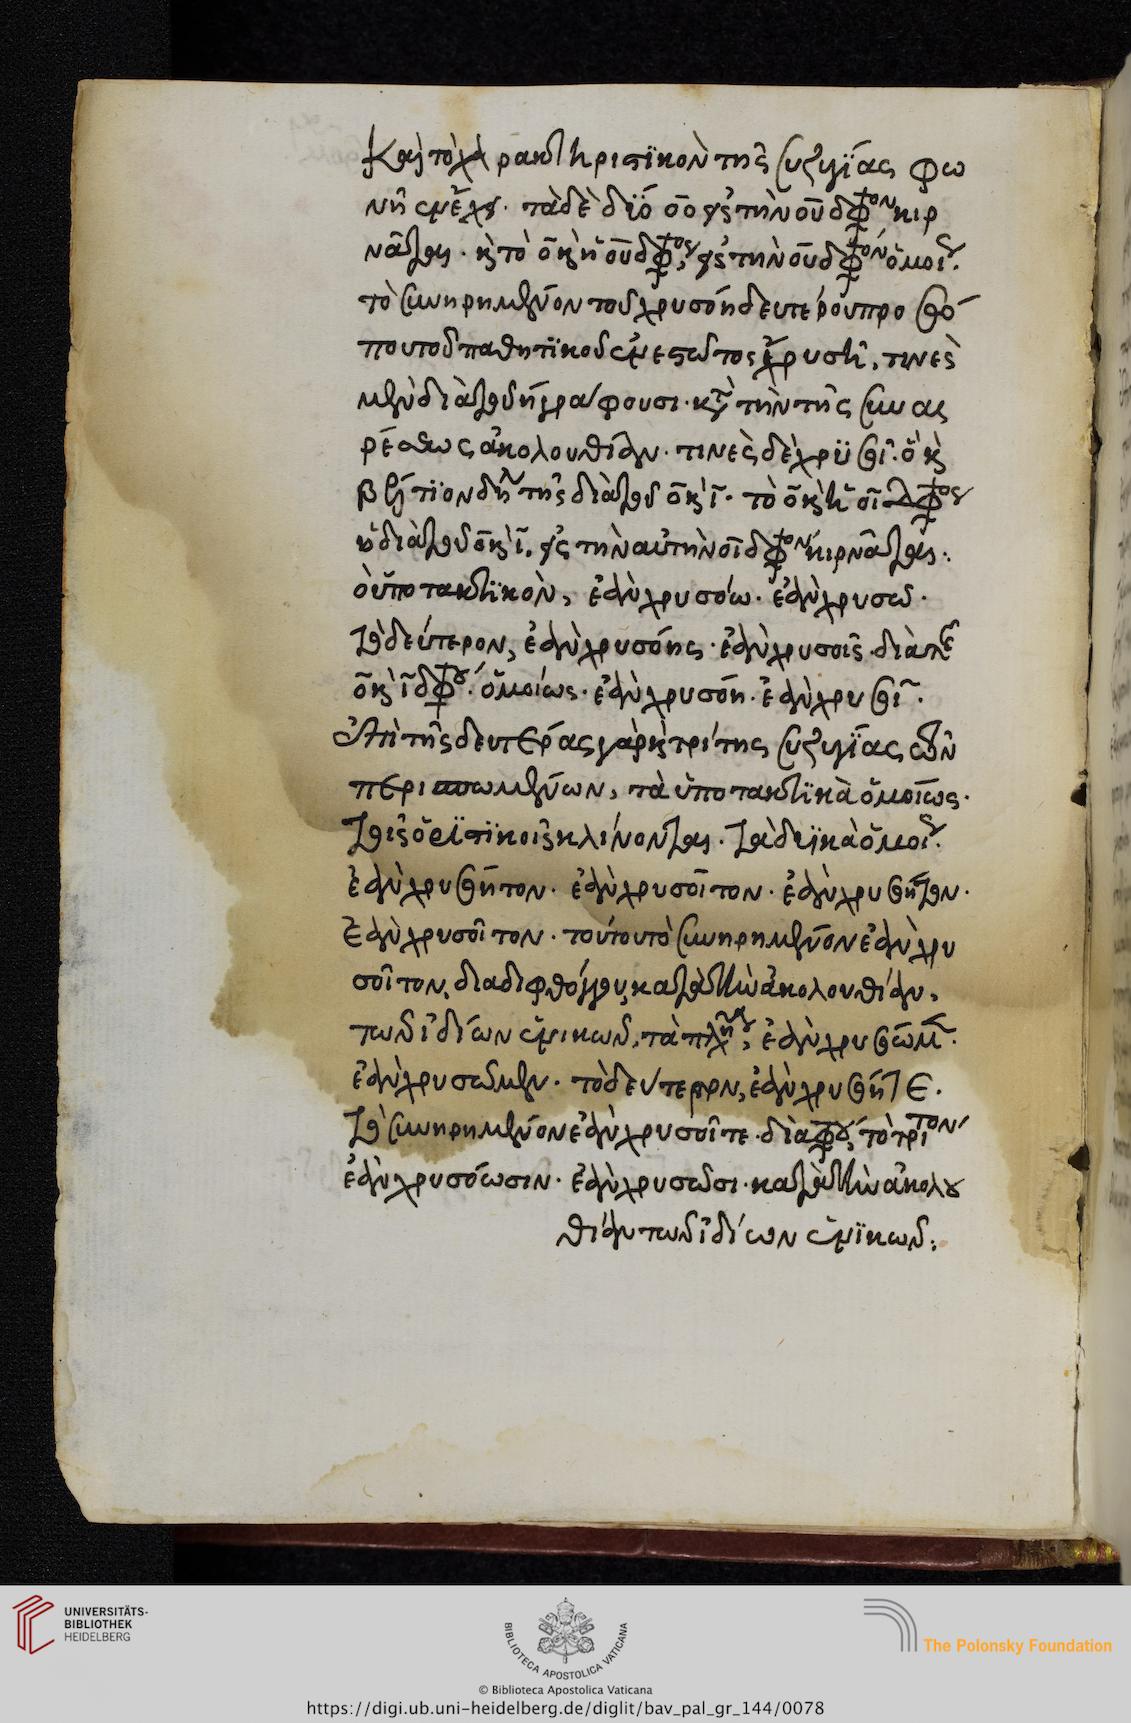 καὶ τὸ χαρακτηριστϊκὸν τῆς συζυγΐας φω
νῆεν ἔχει. τὰ δὲ δύο οο εἰς τὴν ου δίφθογγον κιρ
νᾶται. καὶ τὸ ο καὶ ἡ ου δίφθογγος, εἰς τὴν ου δίφθογγον ὁμοίως.
τὸ συνηρημένον τοῦ χρυσόῃ δευτέρου προσώ
που τοῦ παθητϊκοῦ ἐνεστῶτος χρυσῇ, τινὲς
μὲν διὰ τοῦ η γράφουσι. κατὰ τὴν τῆς συναι
ρέσεως ἀκολουθίαν. τινὲς δὲ χρϋσοῖ. ὃ καὶ
βέλτϊον διὰ τῆς διὰ τοῦ ο καὶ ι. τὸ ο καὶ ἡ οι δίφθογγος
ἢ διὰ τοῦ ο καὶ ι, εἰς τὴν αὐτὴν οι δίφθογγον κιρνᾶται.
ὁ ὑποτακτϊκὸν, ἐὰν χρυσόω. ἐὰν χρυσῶ.
τὸ δεύτερον, ἐὰν χρυσόῃς. ἐὰν χρυσοῖς. διὰ τῆς
ο καὶ ι διφθόγγου. ὁμοίως. ἐὰν χρυσόῃ. ἐὰν χρυσοῖ.
ἐπὶ τῆς δευτέρας γὰρ καὶ τρίτης συζυγΐας τῶν
περισπωμένων, τὰ ὑποτακτϊκὰ ὁμοίως.
τοῖς ὁριστϊκοῖς κλίνονται. τὰ δυϊκὰ ὁμοίως.
ἐὰν χρυσόητον. ἐὰν χρυσοῖτον. ἐὰν χρυσόητον.
ἐὰν χρυσοῖτον. τούτου τὸ συνηρημένον ἐὰν χρυ
σοῖτον, διὰ διφθόγγου, κατὰ τὴν ἀκολουθίαν,
τῶν ἰδίων ἑνικῶν. τὰ πληθυντικά, ἐὰν χρυσόωμεν.
ἐὰν χρυσῶμεν. τὸ δεύτερον, ἐὰν χρυσόητε.
τὸ συνηρημένον ἐὰν χρυσοῖτε. διὰ διφθόγγου, τὸ τρίτον
ἐὰν χρυσόωσιν. ἐὰν χρυσῶσι. κατὰ τὴν ἀκολου
θίαν τῶν ἰδίων ἑνϊκῶν:
UNIVERSITÄTS-
BIBLIOTHEK
HEIDELBERG
BIBLIOTECA APOSTOLICA VATICANA
The Polonsky Foundation
© Biblioteca Apostolica Vaticana
https://digi.ub.uni-heidelberg.de/diglit/bav_pal_gr_144/0078